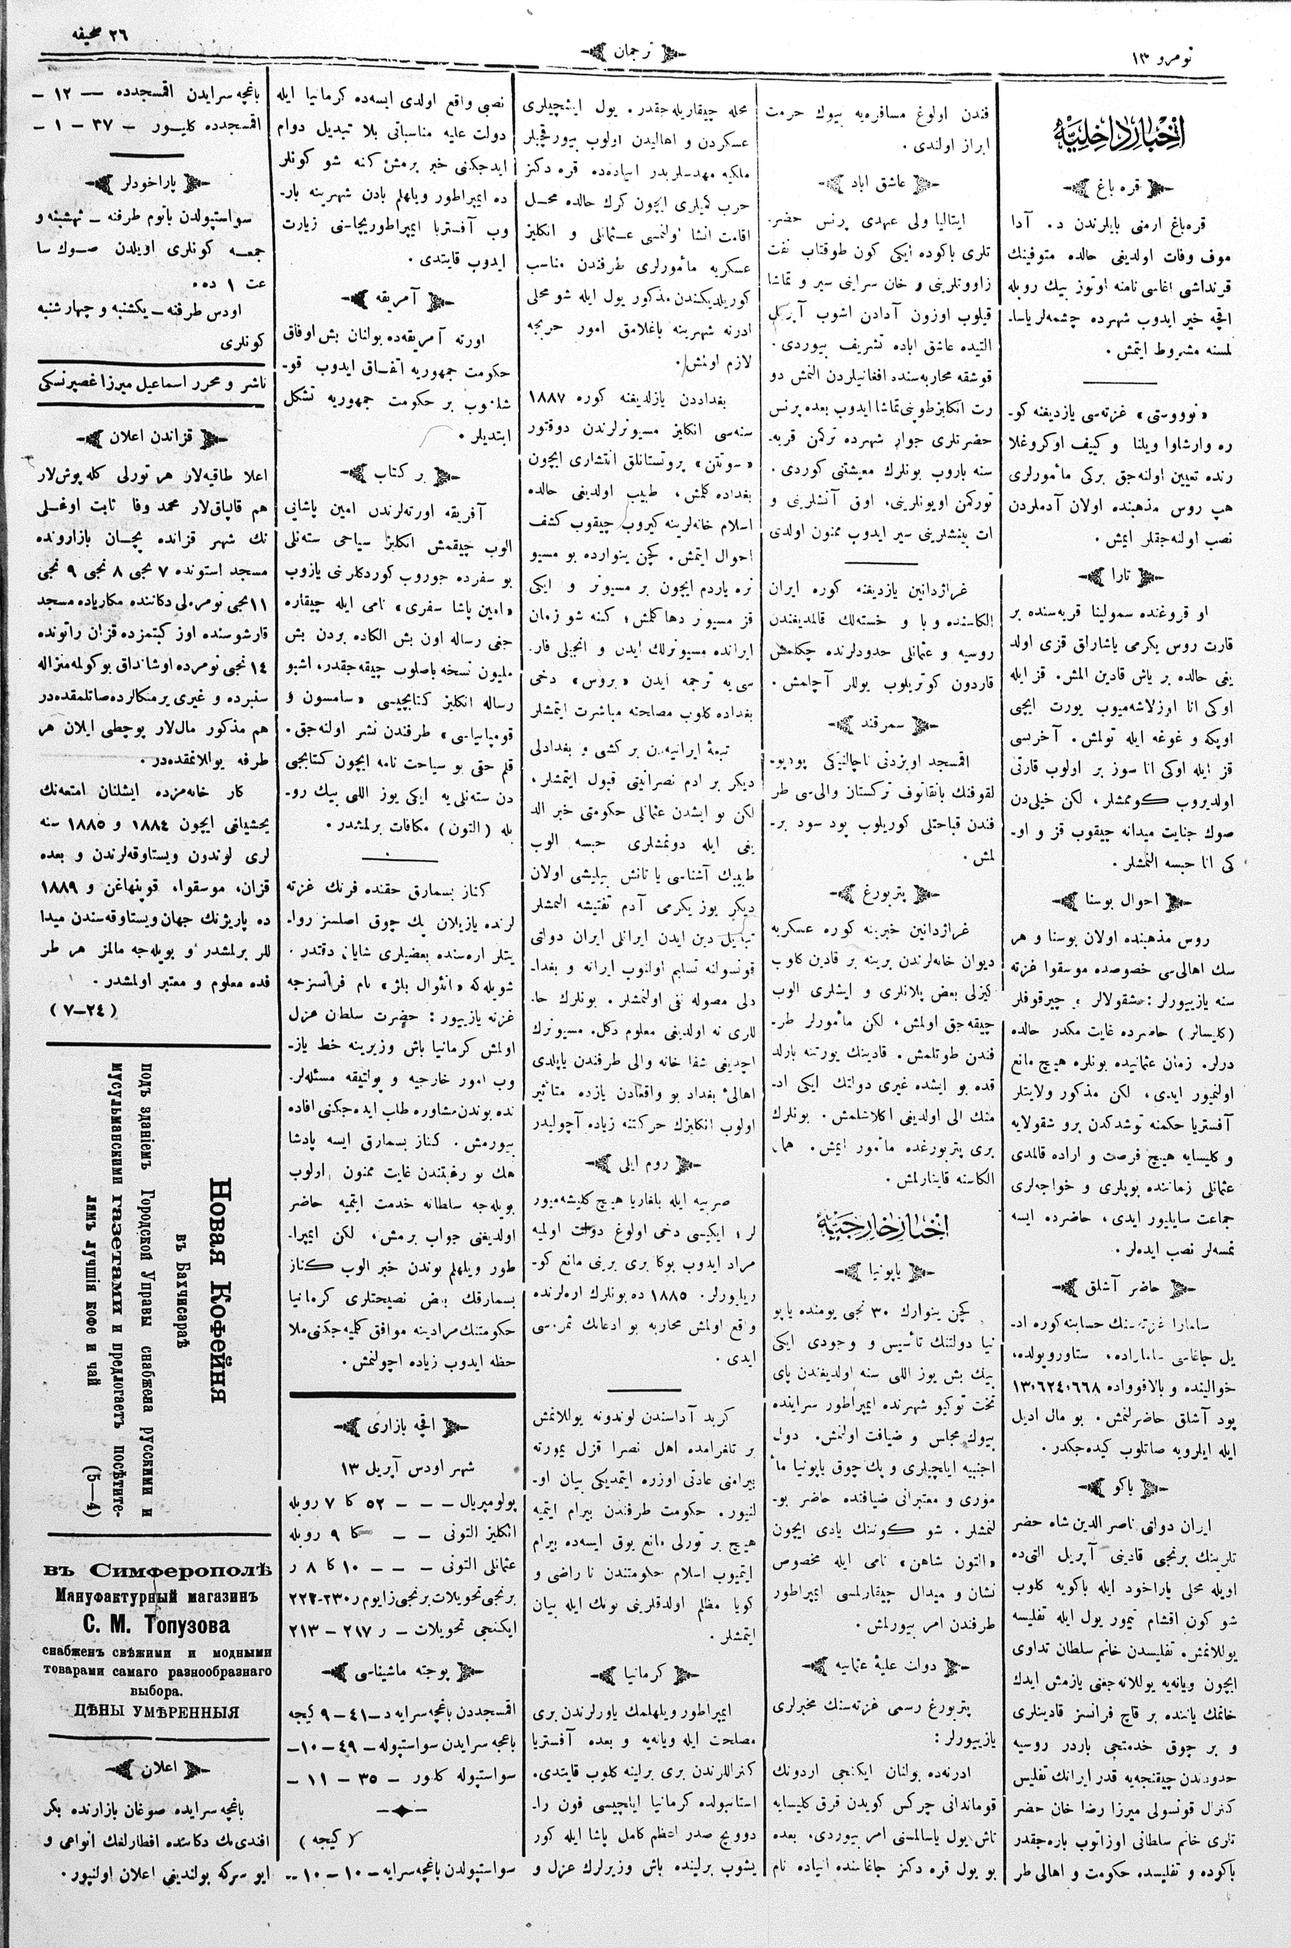 نومرو ١٣
ترجمان
٢٦ صحیفه
اخبار داخلیه
قره باغ
قره‌باغ ارمنی بایلرندن د. آدا
موف وفات اولدیغی حالده متوفینك
قرنداشی اغاسی نامنه اوتوز بیك روبله
اقچه خیر ایدوب شهرده چشمه‌لر یاسا-
لمسنه مشروط ایتمش.
«نووستی» غزته‌سی یازدیغنه كو-
ره وارشاوا ویلنا و كییف اوكروغلا
رنده تعیین اولنه‌جق بركی مأمورلری
هپ روس مذهبنده اولان آدملردن
نصب اولنه‌جقلر ایمش.
تارا
او قروغنده سمولینا قریه‌سنده بر
قارت روس یكرمی یاشاراق قزی اولد
یغی حالده بر یاش قادین المش. قز ایله
اوكی انا اوزلاشه‌میوب یورت ایچی
اوپكه و غوغه ایله تولمش. آخریسی
قز ایله اوكی انا سوز بر اولوب قارتی
اولدیروب كوممشلر، لكن خیلی‌دن
صوك جنایت میدانه چیقوب قز و او-
كی انا حبسه النمشلر.
احوال بوسنا
روس مذهبنده اولان بوسنا و هر
سك اهالی‌سی خصوصده موسقوا غزته
سنه یازییورلر: مشقولالر و چیرقوفلر
(كلیسالر) حاضرده غایت مكدر حالده
درلر. زمان عثمانیده بونلره هیچ مانع
اولنمیور ایدی، لكن مذكور ولایتلر
آفستریا حكمنه توشدكدن برو شقولایه
و كلیسایه هیچ فرصت و اراده قالمدی
عثمانلی زماننده بوپلری و خواجه‌لری
جماعت سایلیور ایدی، حاضرده ایسه
نمسه‌لر نصب ایده‌لر.
حاضر آشلق
سامارا غزته‌سنك حسابنه كوره اد-
یل جاغاسی ساماراده، ستاوروپولده،
خوالینده و بالاقوواده ١٣،٦٢٤،٦٦٨
پود آشلق حاضرلنمش. بو مال ادیل
ایله ایلرویه صاتلوب كیده‌جكدر.
باكو
ایران دولتی ناصر الدین شاه حضر
تلرینك برنجی قادینی آپریل التی‌ده
اویله محلی پاراخود ایله باكویه كلوب
شو كون اقشام تیمور یول ایله تفلیسه
یوللانمش. تفلیسدن خانم سلطان تداوی
ایچون ویانه‌یه یوللانه‌جغی یازمش ایدك
خانمك یاننده بر قاچ فرانسز قادینلری
و بر چوق خدمتجی باردر روسیه
حدودندن چیقنجه‌یه قدر ایرانك تفلیس
كنرال قونسولی میرزا رضا خان حضر
تلری خانم سلطانی اوزاتوب باره‌جقدر
باكوده و تفلیسده حكومت و اهالی طر
فندن اولوغ مسافره‌یه بیوك حرمت
ابراز اولندی.
عاشق اباد
ایتالیا ولی عهدی پرنس حضر.
تلری باكوده ایكی كون طوقتاب نفت
زاوودلرینی و خان سراینی سیر و تماشا
قیلوب اوزون آدادن اشوب آپریل
التیده عاشق اباده تشریف بیوردی.
قوشقه محاربه‌سنده افغانیلردن النمش دو
رت انكلیزطوپنی تماشا ایدوب بعده پرنس
حضرتلری جوار شهرده تركمن قریه-
سنه باروب بونلرك معیشتی كوردی.
توركمن اویونلرینی، اوق آتشلرینی و
ات بینشلرینی سیر ایدوب ممنون اولدی
غراژدانین یازدیغنه كوره ایران
الكاسنده وبا و خسته‌لك قالمدیغندن
روسیه و عثمانلی حدودلرنده چكلمش
قاردون كوتریلوب یوللر آچلمش.
سمرقند
اقمسجد اویزدنی ناچالنیكی پودپو-
لقوفنك بانقانوف تركستان والی‌سی طر
فندن قباحتلی كوریلوب پود سود بر-
لمش.
پتربورغ
غراژدانین خبرینه كوره عسكریه
دیوان خانه‌لرندن برینه بر قادین كلوب
كیزلی بعض پلانلری و ایشلری الوب
چیقه‌جق اولمش، لكن مأمورلر طر-
فندن طوتلمش. قادینك یورتنه بارلد
قده بو ایشده غیری دولتك ایكی اد-
منك الی اولدیغی اكلاشلمش. بونلرك
بری پتربورغده مأمور ایمش. همان
الكاسنه قاینارلمش.
اخبار خارجیه
یاپونیا
كچن ینوارك ٣٠ نجی یومنده یاپو
نیا دولتنك تأسیس و وجودی ایكی
بیك بش یوز اللی سنه اولدیغندن پای
تخت توكیو شهرنده ایمپراطور سراینده
بیوك مجلس و ضیافت اولنمش. دول
اجنبیه ایاچیلری و پك چوق یاپونیا مأ
موری و معتبرانی ضیافنده حاضر بو-
لنمشلر. شو كوننك یادی ایچون
«التون شاهن» نامی ایله مخصوص
نشان و میدال چیقارلمسی ایمپراطور
طرفندن امر بیورلمش.
دولت علیهٔ عثمانیه
پتربورغ رسمی غزته‌سنك مخبرلری
یازییورلر:
ادرنه‌ده بولنان ایكنجی اردونك
قوماندانی چركس كویدن قرق كلیسایه
تاش یول یاسالمسنی امر بیوردی، بعده
بو یول قره دكز جاغاسنده انیاده نام
محله چیقاریله‌جقدر. یول ایشچیلری
عسكردن و اهالیدن اولوب بیورقچیلر
ملكیه مهندسلریدر انیاده‌ده قره دكز
حرب كمیلری ایچون كرك حالده محل
اقامت انشا اولنمسی عثمانلی و انكلیز
عسكریه مأمورلری طرفندن مناسب
كوریلدیكندن مذكور یول ایله شو محلی
ادرنه شهرینه باغلامق امور حربجه
لازم اولمش.
بغداددن یازلدیغنه كوره ١٨٨٧
سنه‌سی انكلیز مسیونرلرندن دوقتور
«سوتتن» پروتستانلق انتشاری ایچون
بغداده كلمش، طبیب اولدیغی حالده
اسلام خانه‌لرینه كیروب چیقوب كشف
احوال ایتمش. كچن ینوارده بو مسیو
نره یاردم ایچون بر مسیونر و ایكی
قز مسیونر دها كلمش، كنه شو زمان
ایرانده مسیونرلك ایدن و انجیلی فار.
سی‌یه ترجمه ایدن «بروس» دخی
بغداده كلوب مصلحته مباشرت ایتمشلر
تبعهٔ ایرانیه‌دن بر كشی و بغدادلی
دیكر بر ادم نصرانیتی قبول ایتمشلر،
لكن بو ایشدن عثمانلی حكومتی خبر الد
یغی ایله دونمشلری حبسه الوب
طبیبك آشناسی یا تانش بیلیشی اولان
دیكر یوز یكرمی آدم تفتیشه النمشلر
تبدیل دین ایدن ایرانلی ایران دولتی
قونسولنه تسلیم اولنوب ایرانه و بغدا-
دلی موصوله نفی اولنمشلر. بونلرك حا.
للری نه اولدیغی معلوم دكل. مسیونرك
اچدیغی شفا خانه والی طرفندن یاپلدی
اهالیٔ بغداد بو واقعادن یازده متأثیر
اولوب انكلیزك حركتنه زیاده آچولیدر
روم ایلی
صربیه ایله بلغاریا هیچ كلیشه‌میور
لر، ایكیسی دخی اولوغ دولت اولمیه
مراد ایدوب بوكا بری برینی مانع كو-
ریلیورلر. ١٨٨٥ ده بونلرك اره‌لرنده
واقع اولمش محاربه بو ادعانك ثمره‌سی
ایدی.
كرید آداسندن لوندونه یوللانمش
بر تلغرامده اهل نصرا قزل یمورته
بیرامنی عادتی اوزره ایتمدیكی بیان او-
لنیور. حكومت طرفندن بیرام ایتمیه
هیچ بر تورلی مانع یوق ایسه‌ده بیرام
ایتمیوب اسلام حكومتندن نا راضی و
كویا مظلم اولدقلرینی بونك ایله بیان
ایتمشلر.
كرمانیا
ایمپراطور ویلهلمك یاورلرندن بری
مصلحت ایله ویانه‌یه و بعده آفستریا
كنراللرندن بری برلینه كلوب قایتدی.
استانبولده كرمانیا ایلچیسی فون را-
دوویچ صدر اعظم كامل پاشا ایله كور
یشوب برلینده باش وزیرلرك عزل و
نصبی واقع اولدی ایسه‌ده كرمانیا ایله
دولت علیه مناسباتی بلا تبدیل دوام
ایدجكنی خبر برمش كنه شو كونلر
ده ایمپراطور ویلهلم بادن شهرینه بار-
وب آفستریا ایمپراطوریچاسنی زیارت
ایدوب قایتدی.
آمریقه
اورته آمریقه‌ده بولنان بش اوفاق
حكومت جمهوریه اتفاق ایدوب قو-
شلنوب بر حكومت جمهوریه تشكل
ایتدیلر.
بر كتاب
آفریقه اورته‌لرندن امین پاشایی
الوب چیقمش انكلیز سیاحی ستەنلی
بو سفرده جوروب كوردكلرنی یازوب
«امین پاشا سفری» نامی ایله چیقاره
جغی رساله اون بش الكاده بردن بش
ملیون نسخه باصلوب چیقه‌جقدر، اشبو
رساله انكلیز كتابچیسی «سامسون و
قومپانیاسی» طرفندن نشر اولنه‌جق.
قلم حقی بو سیاحت نامه ایچون كتابجی
دن ستەنلی‌یه ایكی یوز اللی بیك رو-
بله (التون) مكافات برلمشدر.
كناز بسمارق حقنده فرنك غزته
لرنده یازیلان پك چوق اصلسز روا-
یتلر اره‌سنده بعضیلری شایان دقتدر.
شویله‌كه «انثوال بلژ» نام فرانسزجه
غزته یازییور: حضرت سلطان عزل
اولمش كرمانیا باش وزیرینه خط یاز-
وب امور خارجیه و پولتیقه مسئله‌لر-
نده بوندن مشاوره طلب ایده جكنی افاده
بیورمش. كناز بسمارق ایسه پادشا
هك بو رغبتندن غایت ممنون اولوب
بویله‌جه سلطانه خدمت ایتمیه حاضر
اولدیغنی جواب برمش، لكن ایمپرا-
طور ویلهلم بوندن خبر الوب كناز
بسمارقك بعض نصیحتلری كرمانیا
حكومتنك مرادینه موافق كلمیه‌جكنی ملا
حظه ایدوب زیاده اچولنمش.
اقچه بازاری
شهر اودس آپریل ١٣
پولومپریال – – – ٥٢ كا ٧ روبله
انكلیز التونی – – كا ٩ روبله
عثمانلی التونی – – – ١٠ كا ٨ ر
برنجی تحویلات برنجی زایوم ر ٢٣٠-٢٢٤
ایكنجی تحویلات – ر ٢١٧ – ٢١٣
پوچته ماشیناسی
اقمسجددن باغچه سرایه د–٤١–٩ كیجه
باغچه سرایدن سواستپوله – ٤٩ –١٠–
سواستپوله كلور – ٣٥ – ١١ –
(كیجه)
سواستپولدن باغچه سرایه – ١٠ – ١٠ --
باغچه سرایدن اقمسجدده — ١٢ –
اقمسجدده كلیور – ٣٧ – ١ –
پاراخودلر
سواستپولدن باتوم طرفنه – پنجشنبه و
جمعه كونلری اویلدن صوك سا
عت ١ ده.
اودس طرفنه – یكشنبه و چهارشنبه
كونلری
ناشر و محرر اسماعیل میرزا غصپرنسكی
قزاندن اعلان
اعلا طاقیه‌لار هر تورلی كله پوش‌لار
هم قالپاق‌لار محمد وفا ثابت اوغلی
نك شهر قزانده پچان بازارونده
مسجد استونده ٧ نجی ٨ نجی ٩ نجی
١١ نجی نومره‌لی دكاننده مكاریاده مسجد
قارشوسنده اوز كبتمزده قزان راتونده
١٤ نجی نومرده اوشانداق بوكولمه منزاله
سنبرده و غیری یرمنكالرده صاتلمقده‌در
هم مذكور مال‌لار پوچطی ایلان هر
طرفه یوالانمقده‌در.
كار خانه‌مزده ایشلنان امتعه‌نك
یحشیلغی ایچون ١٨٨٤ و ١٨٨٥ سنه
لری لوندون ویستاوقه‌لرندن و بعده
قزان، موسقوا، قوپنهاغن و ١٨٨٩
ده پاریژنك جهان ویستاوقه سندن میدا
للر برلمشدر و بویله‌جه مالمز هر طر
فده معلوم و معتبر اولمشدر.
(٢٤–٧)
Новая Кофейня
въ Бахчисараѣ
подъ зданіемъ Городской Управы снабжена русскими и
мусульманскими газетами и предлогаетъ посѣтите-
лямъ лучшія кофе и чай
(5—4)
въ Симферополѣ
Мануфактурный магазинъ
С. М. Топузова
снабженъ свѣжими и модными
товарами самаго разнообразнаго
выбора.
ЦѢНЫ УМѢРЕННЫЯ
اعلان
باغچه سرایده صوغان بازارنده بكر
افندی‌نك دكاننده افطارلقك انواعی و
ایو سركه بولندیغی اعلان اولنیور.